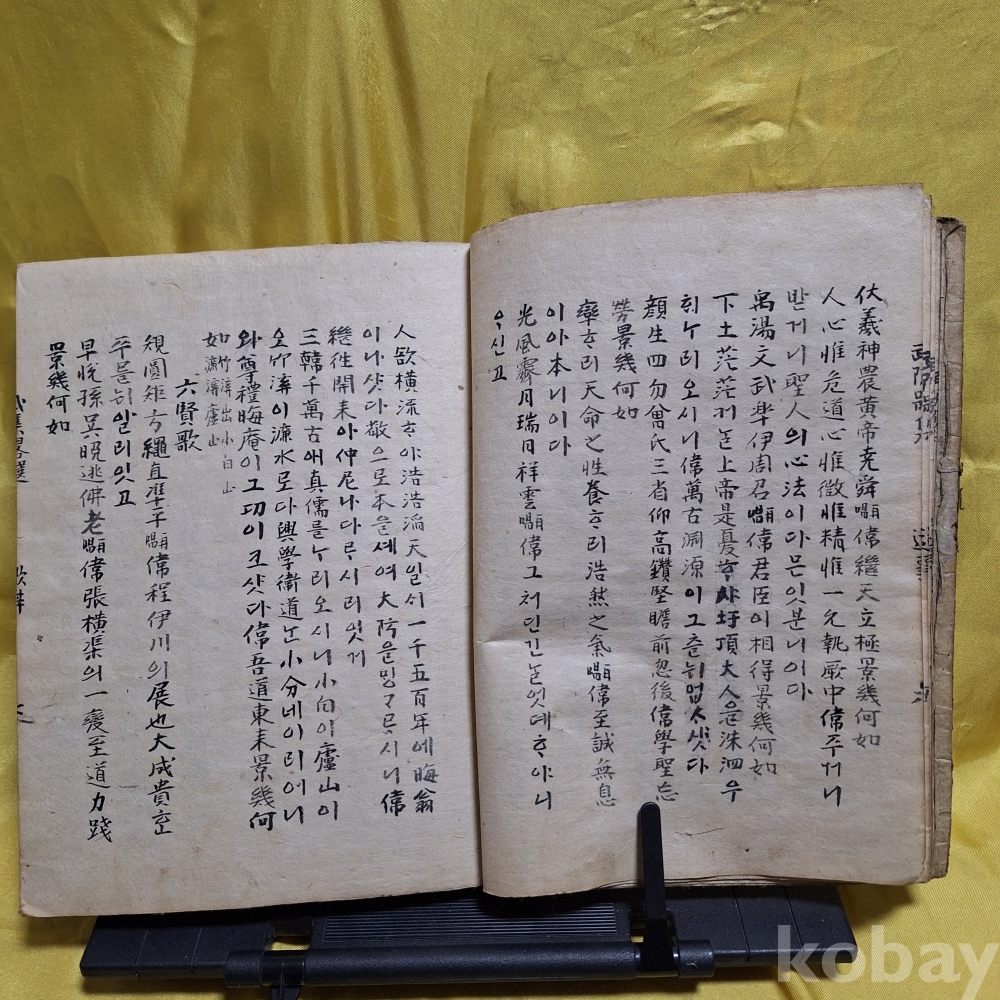 伏羲神農黃帝堯舜 再唱 偉繼天立極景幾何如
人心惟危道心惟微惟精惟一允執厥中偉주거니
받거니聖人의心法이다믄잇분니이다
禹湯文武皐伊周召 再唱 偉君臣이相得景幾何如
下土茫茫커늘上帝是憂ᄒᆞ샤圩頂大人을洙泗우
희ᄂᆞ리오시니偉萬古淵源이그츨뉘업ᄉᆞ샷다
顔生四勿曾氏三省仰高鑽堅瞻前忽後偉學聖忘
勞景幾何如
率ᄒᆞ리天命之性養ᄒᆞ리浩然之氣 再唱 偉至誠無息
이아本니이다
光風霽月瑞日祥雲 再唱 偉그처딘긴늘엇뎨ᄒᆞ야니
ᄋᆞ신고
人欲橫流ᄒᆞ야浩浩滔天일ᄉᆡ一千五百年에晦翁
이나샷다敬으로本을셰여大防을ᄆᆡᇰᄀᆞᄅᆞ시니偉
繼往開來아仲尼나다ᄅᆞ시리잇게
三韓千萬古애真儒를ᄂᆞ리오시니小白이廬山이
오竹溪이濂水로다興學衛道ᄂᆞᆫ小分네이리어니
와尊禮晦庵이그功이크샷다偉吾道東來景幾何
如 竹溪出小白山 濂溪廬山
六賢歌
規圓矩方繩直準平 再唱 偉程伊川의展也大成貴ᄒᆞᆫ
주를뉘알리잇고
早悅孫吳晚逃佛老 再唱 偉張橫渠의一變至道力踐
景幾何如